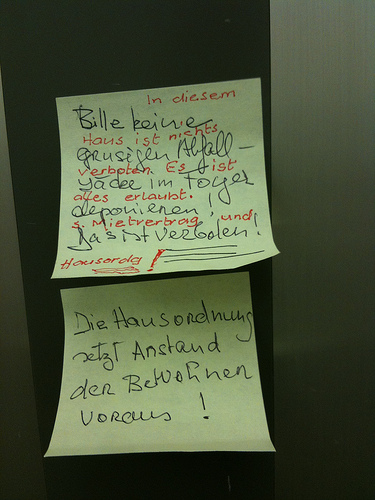 In diesem
Bitte keine
Haus ist nichts
grusigen Abfall-
verboten. Es ist
säcke im Foyer
alles erlaubt.
deponieren!
s. Mietvertrag, und
Das ist verboten!
Hausordg!
Die Hausordnung
setzt Anstand
der Bewohner
voraus!